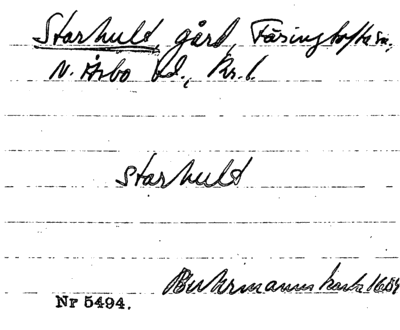 Starhult, gård, Färingtofta sn.,
N. Åsbo hd., Kr. l.
starhult
Buhrmanns karta 1684
Nr 5494.